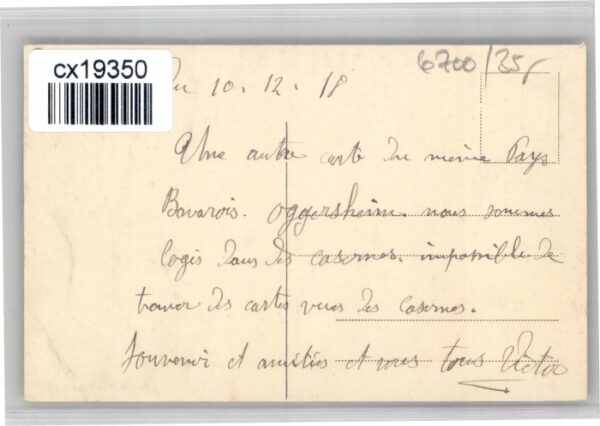 cx19350
6700/35,-
Du 10.12.18
Une autre carte du même Pays
Bavarois. Oggersheim. nous sommes
logis dans des casernes. impossible de
trouver des cartes vues des casernes.
Souvenir et amitiés et vous tous Victor